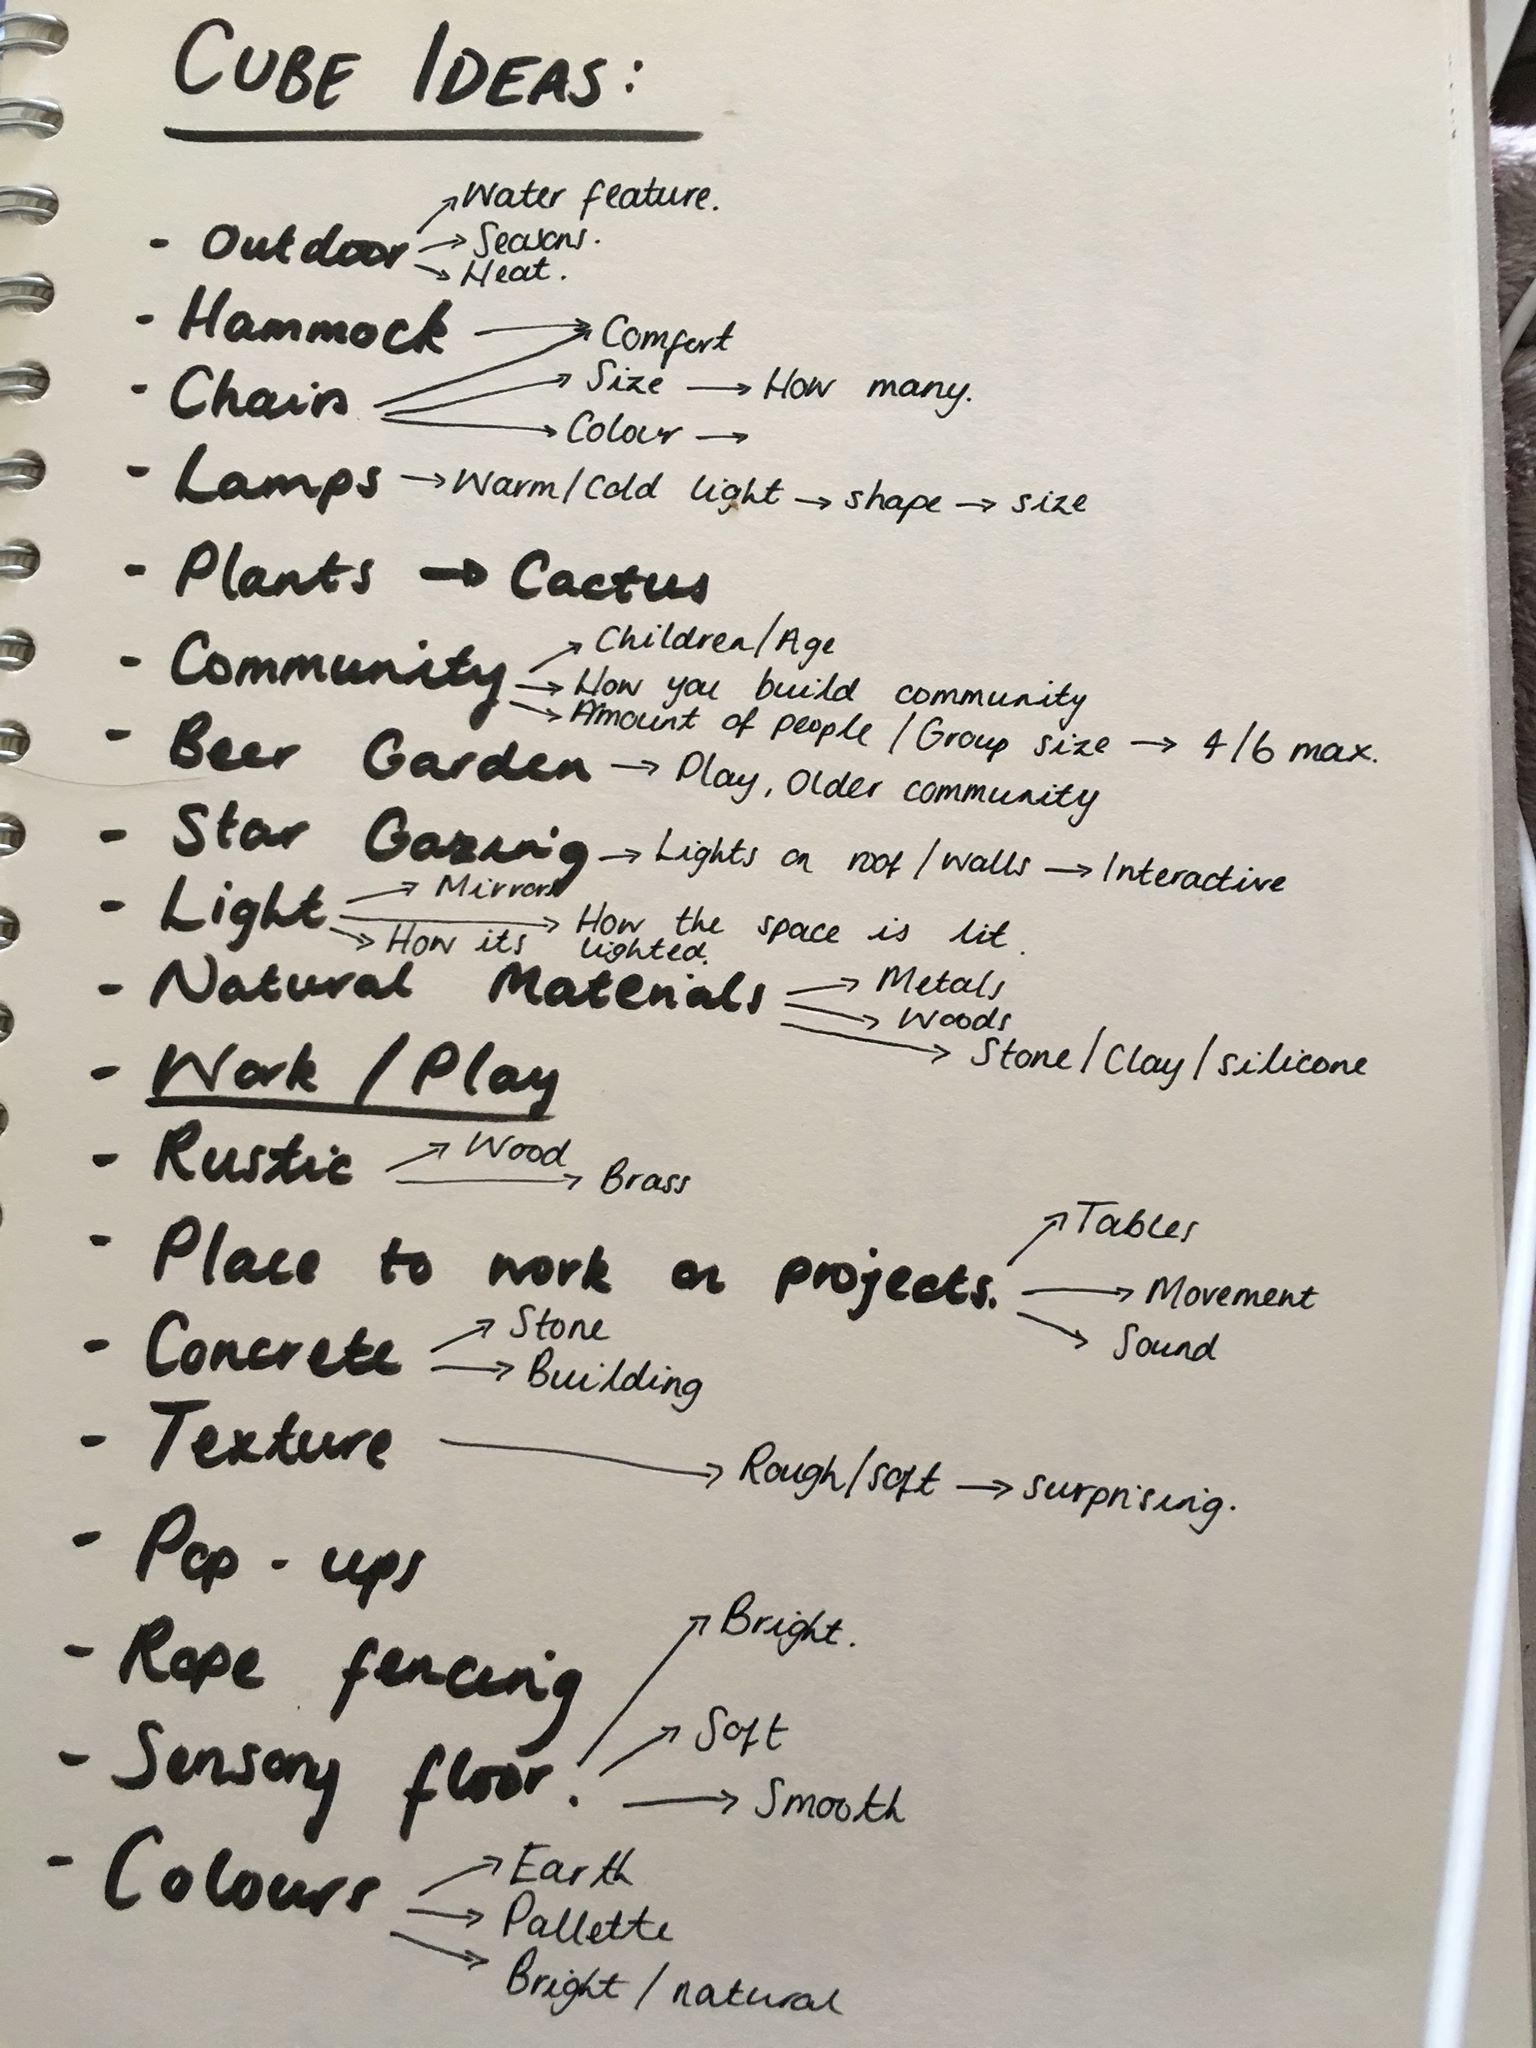 CUBE IDEAS:
- Outdoor → Water feature.
→ Seasons.
→ Heat.
- Hammock → Comfort
- Chairs → Size → How many.
→ Colour →
- Lamps → Warm/Cold light → shape → size
- Plants → Cactus
- Community → Children/Age
→ How you build community
→ Amount of people / Group size → 4/6 max.
- Beer Garden → Play, Older community
- Star Gazing → Lights on roof/walls → Interactive
- Light → Mirrors
→ How the space is lit.
→ How its lighted.
- Natural Materials → Metals
→ Woods
→ Stone/Clay/silicone
- Work / Play
- Rustic → Wood
→ Brass
- Place to work on projects. → Tables
→ Movement
→ Sound
- Concrete → Stone
→ Building
- Texture → Rough/soft → surprising.
- Pop-ups
- Rope fencing
- Sensory floor. → Bright.
→ Soft
→ Smooth
- Colours → Earth
→ Pallette
→ Bright / natural